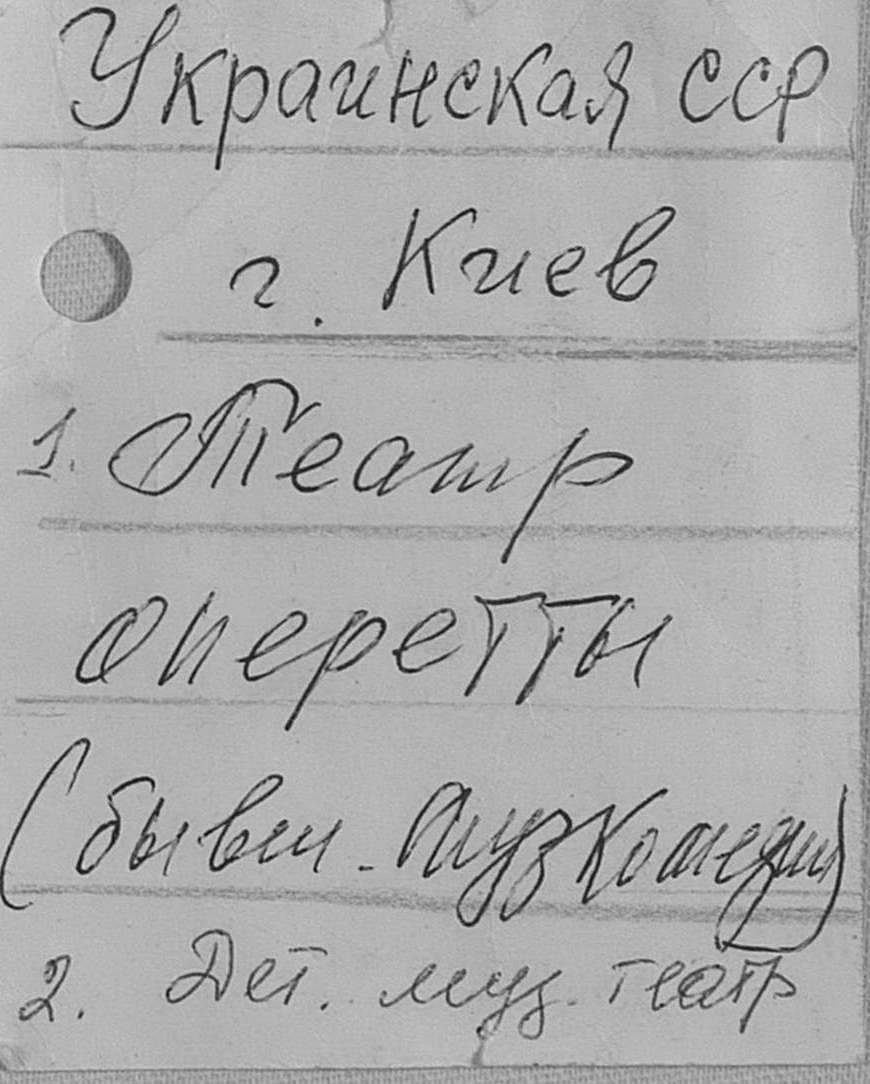 Украинская ССР
г. Киев
1. Театр
оперетты
(бывш. Музкомедии)
2. Дет. муз. театр